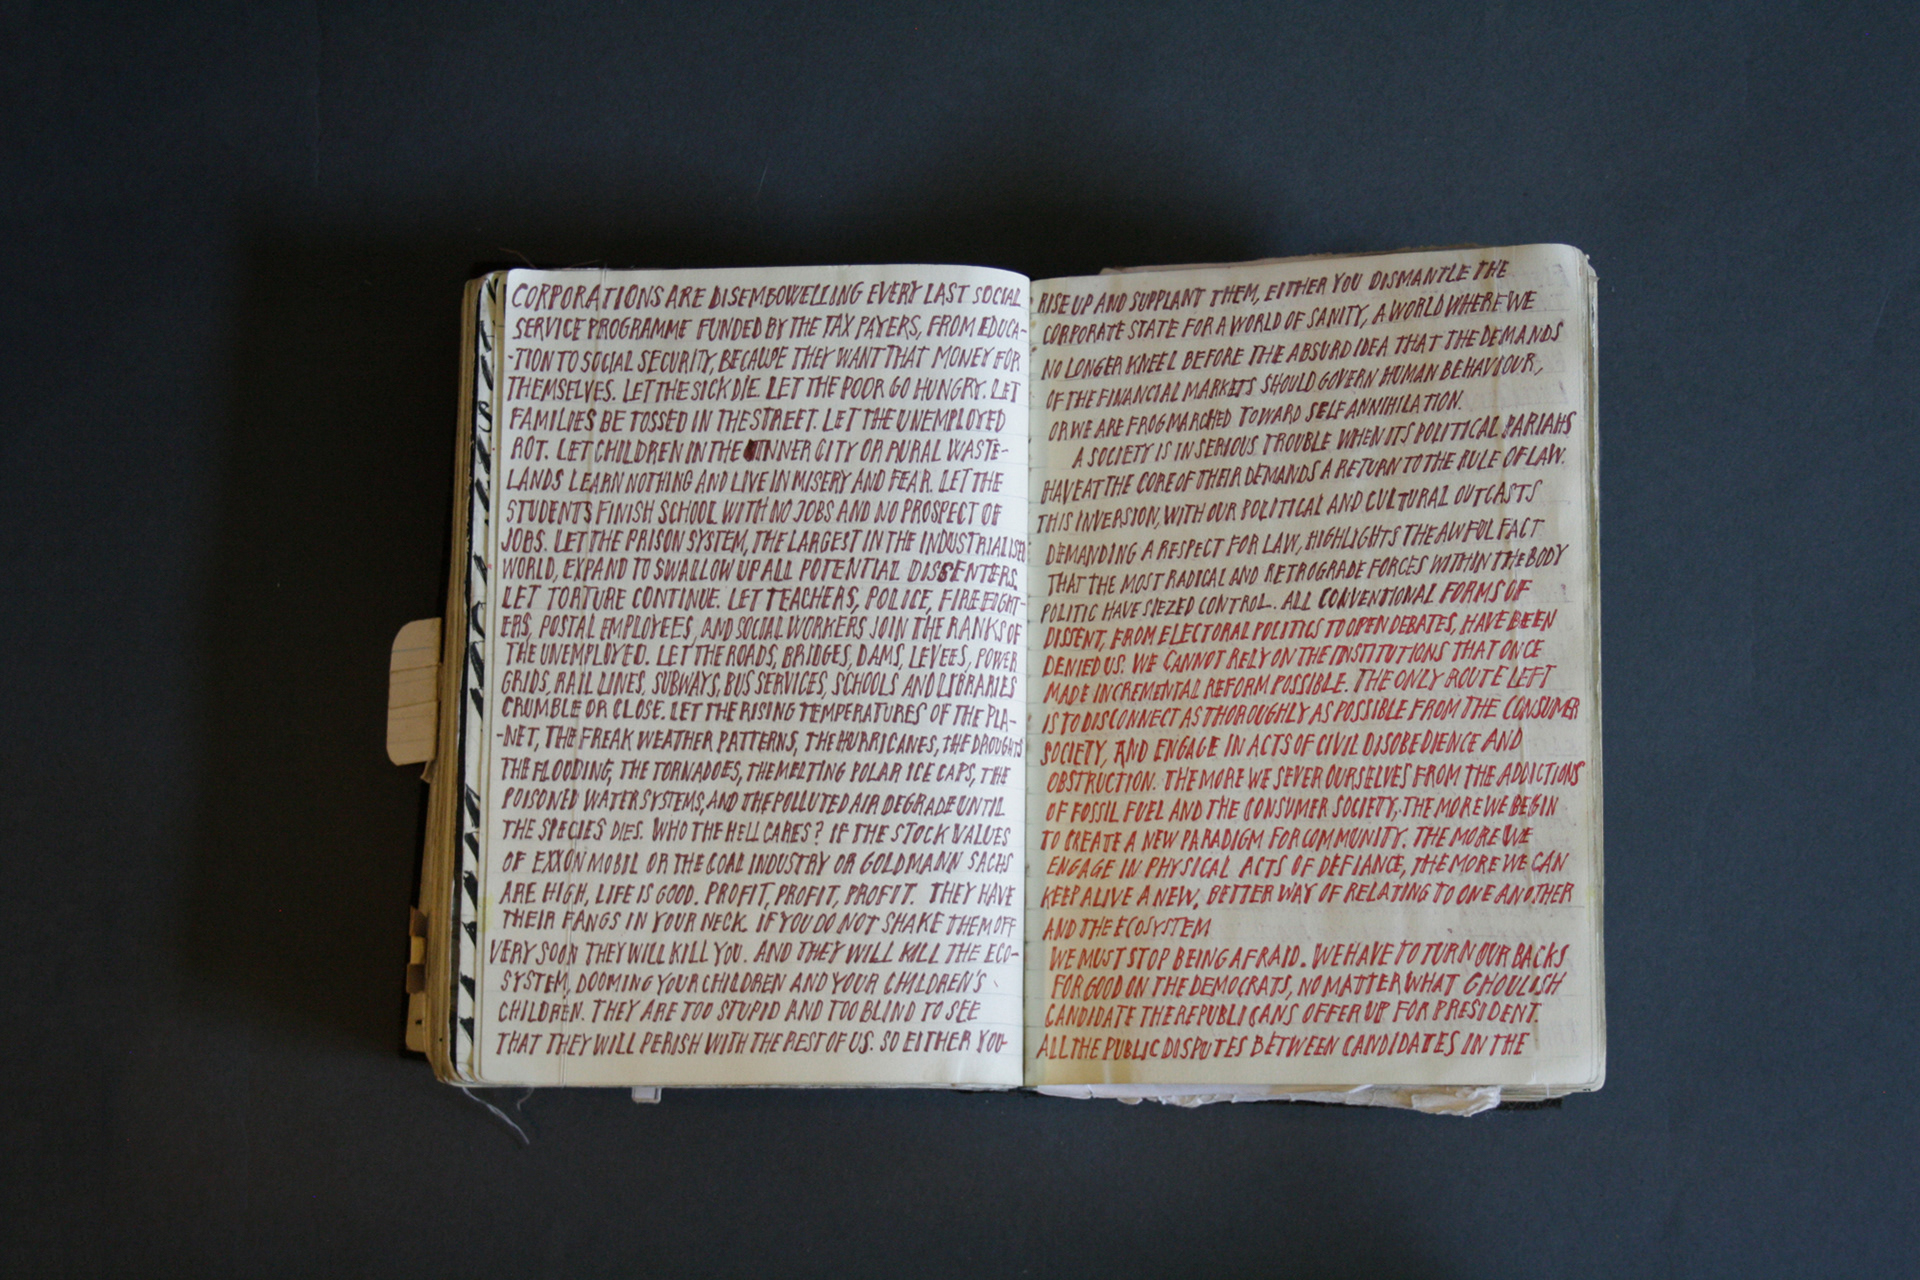 CORPORATIONS ARE DISEMBOWELLING EVERY LAST SOCIAL
SERVICE PROGRAMME FUNDED BY THE TAX PAYERS, FROM EDUCA-
-TION TO SOCIAL SECURITY, BECAUSE THEY WANT THAT MONEY FOR
THEMSELVES. LET THE SICK DIE. LET THE POOR GO HUNGRY. LET
FAMILIES BE TOSSED IN THE STREET. LET THE UNEMPLOYED
ROT. LET CHILDREN IN THE INNER CITY OR RURAL WASTE-
LANDS LEARN NOTHING AND LIVE IN MISERY AND FEAR. LET THE
STUDENTS FINISH SCHOOL WITH NO JOBS AND NO PROSPECT OF
JOBS. LET THE PRISON SYSTEM, THE LARGEST IN THE INDUSTRIALISED
WORLD, EXPAND TO SWALLOW UP ALL POTENTIAL DISSENTERS.
LET TORTURE CONTINUE. LET TEACHERS, POLICE, FIREFIGHT-
ERS, POSTAL EMPLOYEES, AND SOCIAL WORKERS JOIN THE RANKS OF
THE UNEMPLOYED. LET THE ROADS, BRIDGES, DAMS, LEVEES, POWER
GRIDS, RAIL LINES, SUBWAYS, BUS SERVICES, SCHOOLS AND LIBRARIES
CRUMBLE OR CLOSE. LET THE RISING TEMPERATURES OF THE PLA-
-NET, THE FREAK WEATHER PATTERNS, THE HURRICANES, THE DROUGHTS
THE FLOODING, THE TORNADOES, THE MELTING POLAR ICE CAPS, THE
POISONED WATER SYSTEMS, AND THE POLLUTED AIR DEGRADE UNTIL
THE SPECIES DIES. WHO THE HELL CARES? IF THE STOCK VALUES
OF EXXON MOBIL OR THE COAL INDUSTRY OR GOLDMANN SACHS
ARE HIGH, LIFE IS GOOD. PROFIT, PROFIT, PROFIT. THEY HAVE
THEIR FANGS IN YOUR NECK. IF YOU DO NOT SHAKE THEM OFF
VERY SOON THEY WILL KILL YOU. AND THEY WILL KILL THE ECO-
SYSTEM, DOOMING YOUR CHILDREN AND YOUR CHILDREN'S
CHILDREN. THEY ARE TOO STUPID AND TOO BLIND TO SEE
THAT THEY WILL PERISH WITH THE REST OF US. SO EITHER YOU
RISE UP AND SUPPLANT THEM, EITHER YOU DISMANTLE THE
CORPORATE STATE FOR A WORLD OF SANITY, A WORLD WHERE WE
NO LONGER KNEEL BEFORE THE ABSURD IDEA THAT THE DEMANDS
OF THE FINANCIAL MARKETS SHOULD GOVERN HUMAN BEHAVIOUR,
OR WE ARE FROGMARCHED TOWARD SELF ANNIHILATION.
A SOCIETY IS IN SERIOUS TROUBLE WHEN ITS POLITICAL PARIAHS
HAVE AT THE CORE OF THEIR DEMANDS A RETURN TO THE RULE OF LAW.
THIS INVERSION, WITH OUR POLITICAL AND CULTURAL OUTCASTS
DEMANDING A RESPECT FOR LAW, HIGHLIGHTS THE AWFUL FACT
THAT THE MOST RADICAL AND RETROGRADE FORCES WITHIN THE BODY
POLITIC HAVE SIEZED CONTROL. ALL CONVENTIONAL FORMS OF
DISSENT, FROM ELECTORAL POLITICS TO OPEN DEBATES, HAVE BEEN
DENIED US. WE CANNOT RELY ON THE INSTITUTIONS THAT ONCE
MADE INCREMENTAL REFORM POSSIBLE. THE ONLY ROUTE LEFT
IS TO DISCONNECT AS THOROUGHLY AS POSSIBLE FROM THE CONSUMER
SOCIETY, AND ENGAGE IN ACTS OF CIVIL DISOBEDIENCE AND
OBSTRUCTION. THE MORE WE SEVER OURSELVES FROM THE ADDICTIONS
OF FOSSIL FUEL AND THE CONSUMER SOCIETY, THE MORE WE BEGIN
TO CREATE A NEW PARADIGM FOR COMMUNITY. THE MORE WE
ENGAGE IN PHYSICAL ACTS OF DEFIANCE, THE MORE WE CAN
KEEP ALIVE A NEW, BETTER WAY OF RELATING TO ONE ANOTHER
AND THE ECOSYSTEM
WE MUST STOP BEING AFRAID. WE HAVE TO TURN OUR BACKS
FOR GOOD ON THE DEMOCRATS, NO MATTER WHAT GHOULISH
CANDIDATE THE REPUBLICANS OFFER UP FOR PRESIDENT.
ALL THE PUBLIC DISPUTES BETWEEN CANDIDATES IN THE